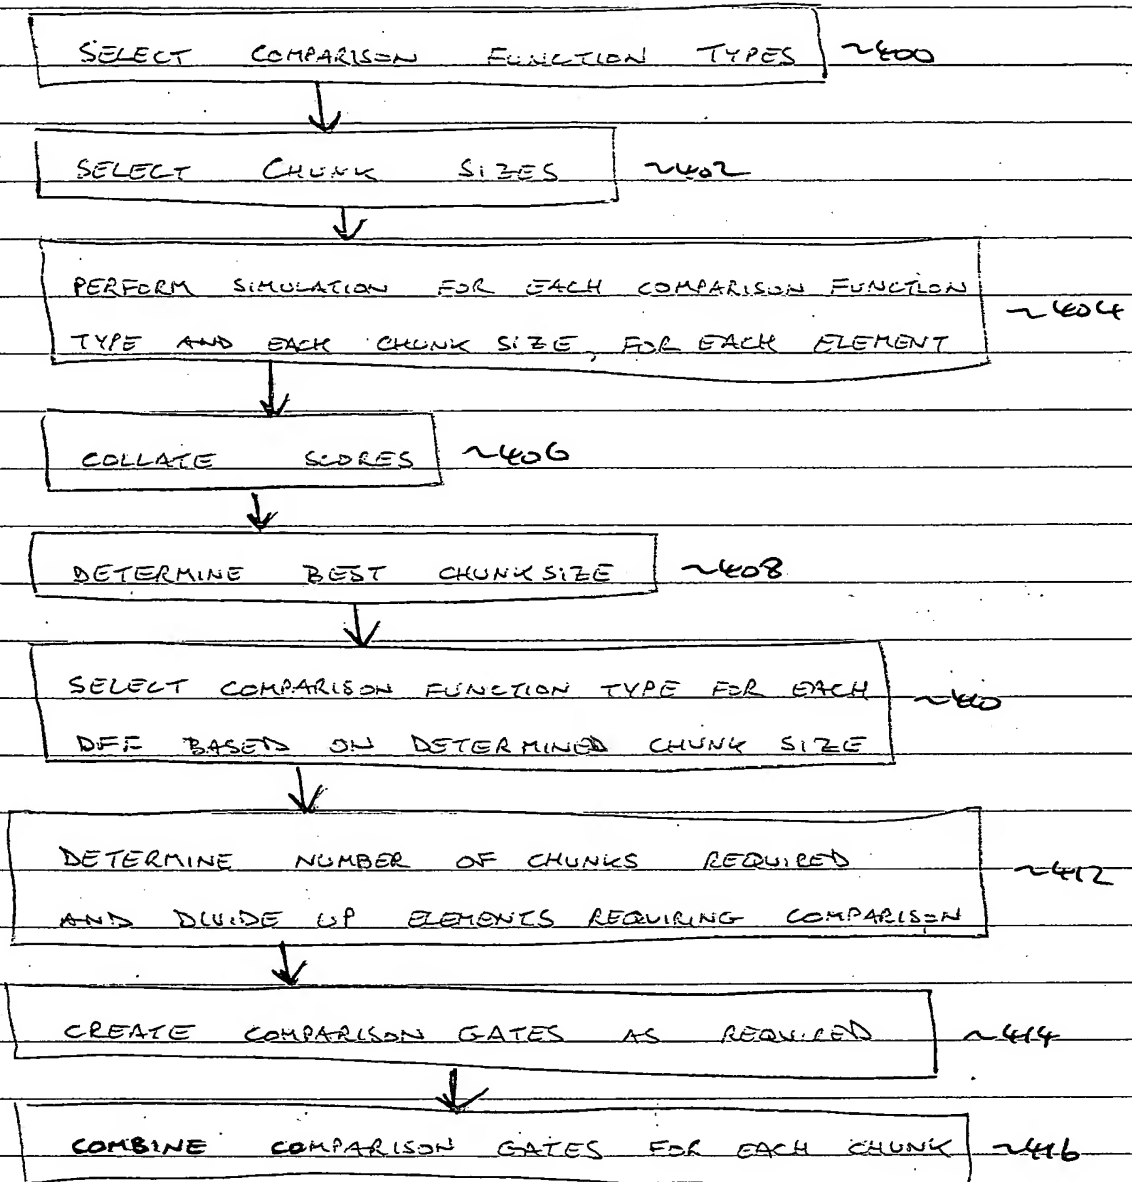 SELECT COMPARISON FUNCTION TYPES ~400
SELECT CHUNK SIZES ~402
PERFORM SIMULATION FOR EACH COMPARISON FUNCTION
TYPE AND EACH CHUNK SIZE, FOR EACH ELEMENT ~404
COLLATE SCORES ~406
DETERMINE BEST CHUNKSIZE ~408
SELECT COMPARISON FUNCTION TYPE FOR EACH ~410
DFF BASED ON DETERMINED CHUNK SIZE
DETERMINE NUMBER OF CHUNKS REQUIRED
AND DIVIDE UP ELEMENTS REQUIRING COMPARISON ~412
CREATE COMPARISON GATES AS REQUIRED ~414
COMBINE COMPARISON GATES FOR EACH CHUNK ~416